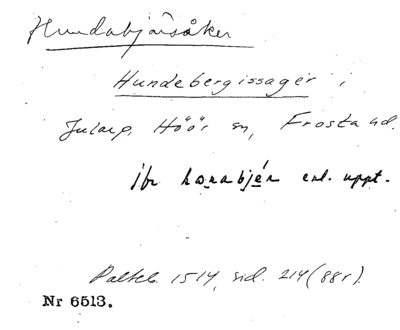 Hundabjärsåker
Hundebergissager i
Jularp, Höör sn, Frosta hd.
jfr harabjär enl. uppt.
Palteb. 1514, sid. 214 (88r).
Nr 6513.